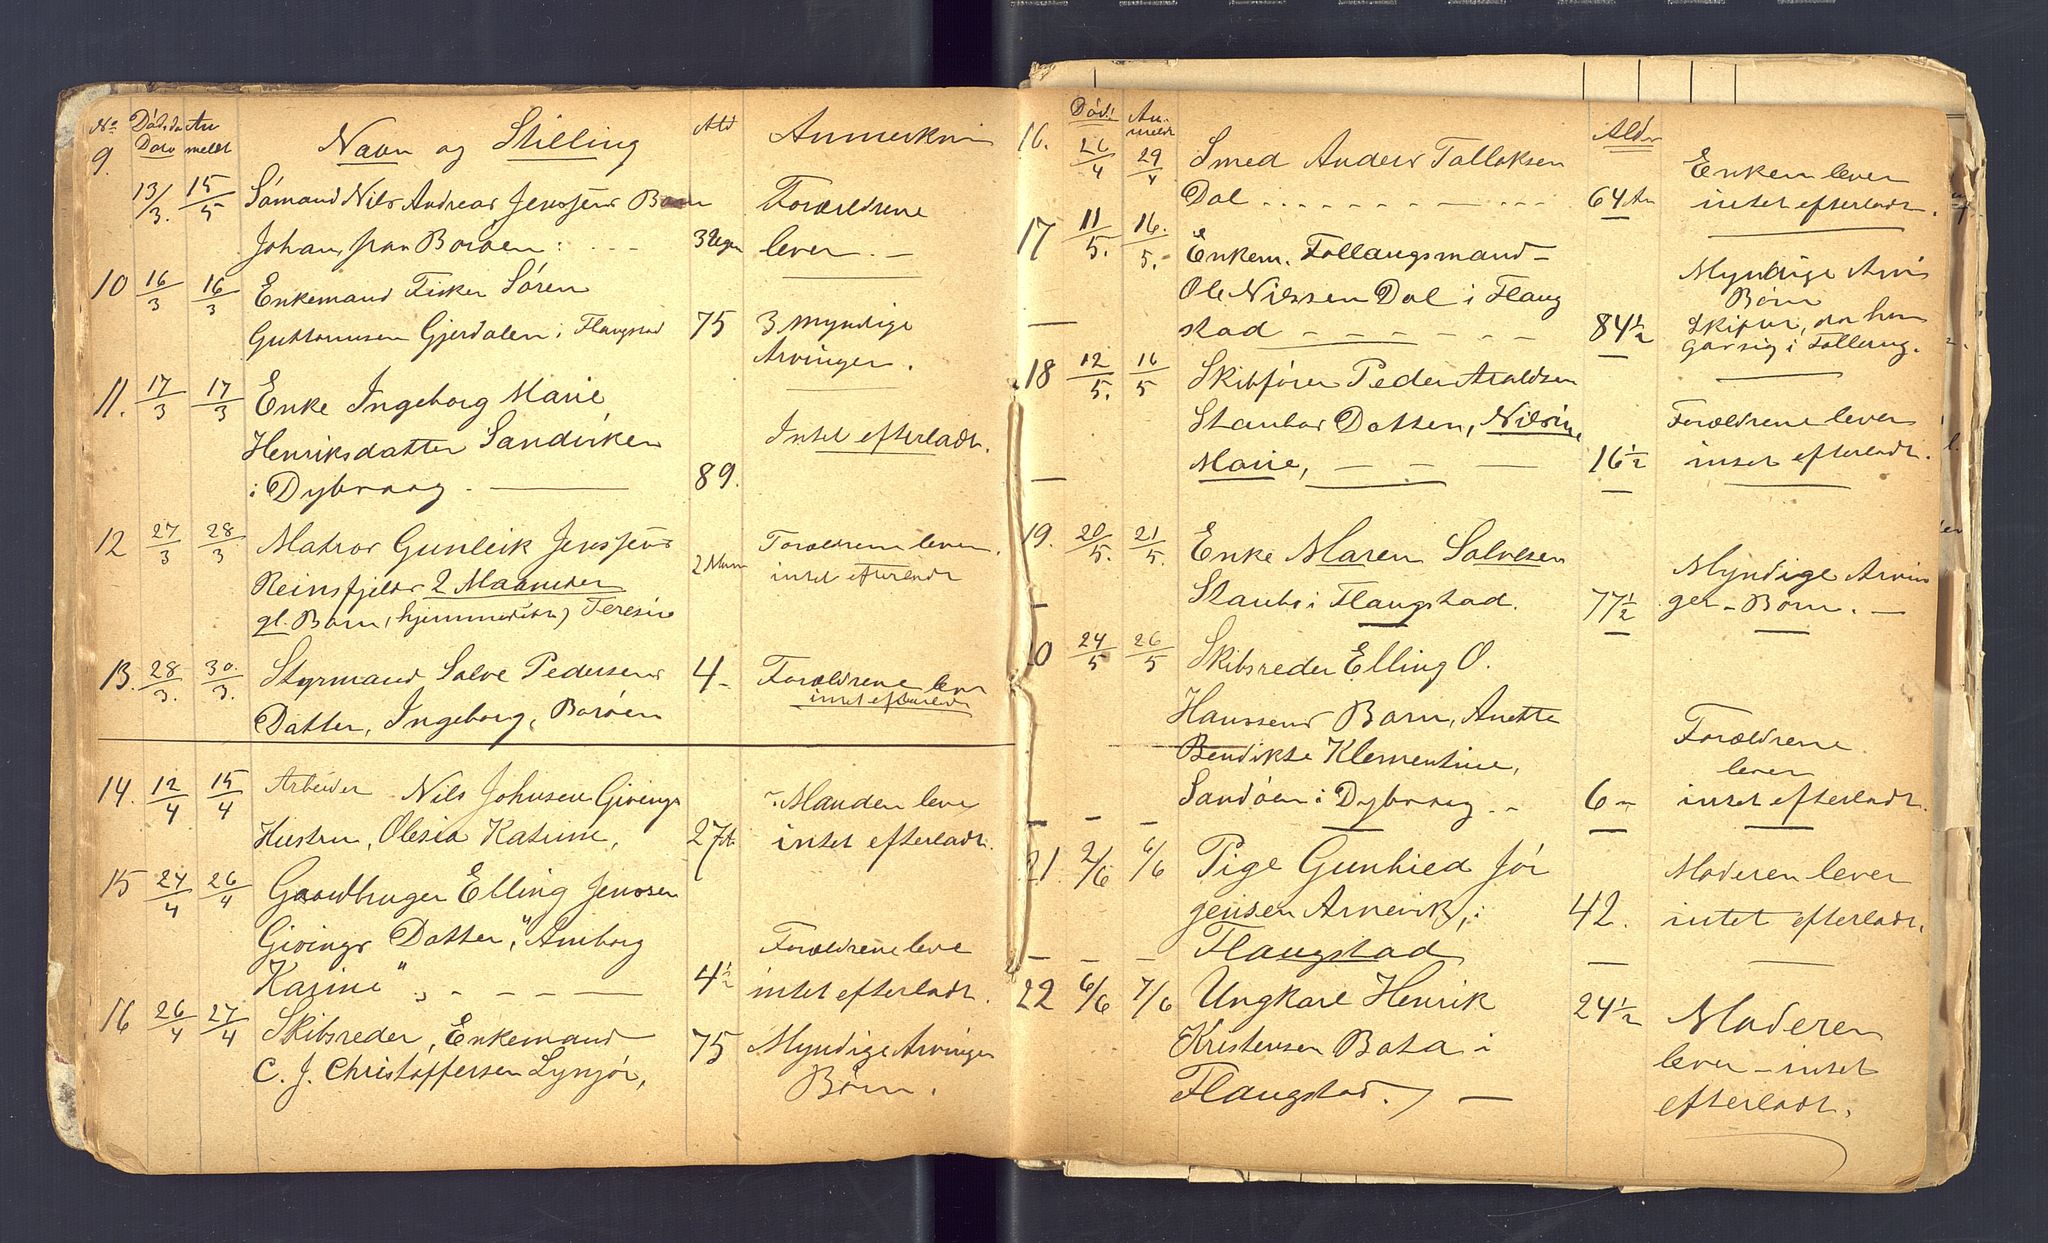 No Dødsda An Navn og Stilling Ald Anmerknin
9. Dato meldt
13/3. 15/5 Sømand Nils Andreas Jenssens Barn Forældrene
Johan, fra Borøen 3 Uger lever. —
10 16/3 16/3 Enkemand Fisker Søren
Guttormsen Gjerdalen i Flangstad 75 3 Myndige
Arvinger.
11. 17/3 17/3 Enke Ingeborg Marie
Henriksdatter Sandviken Intet efterladt.
i Dybvaag. — 89.
12 27/3 28/3 Matros Gunleik Jenssens Forældrene lever.
Reinsfjeld 2 Maaneder intet efterladt
gl. Barn, (hjemmedøbt) Teresie
13. 28/3. 30/3. Styrmand Salve Pedersens 4 - Forældrene leve
Datter, Ingeborg, Borøen intet efterladt
14. 12/4 15/4 Arbeider Nils Johnsen Givings Manden leve
Hustru, Olesia Katrine, 27 intet efterladt.
15 24/4 26/4 Gaardbruger Elling Jenssen
Givings Datter, "Amborg Forældrene leve
Karine" — — — 4½ intet efterladt.
16 26/4 27/4 Skibsreder, Enkemand 75 Myndige Arvinger
C. J. Christoffersen Lyngør, Børn.
Død! Anmeldt Alder
16. 26/4 29/4 Smed Anders Tallaksen Enken lever
Dal . . . . . . . . 64 Aar intet efterladt.
17 11/5. 16./5. Enkem. Follaugsmand - Myndige Arvi
Ole Nilssen Dal i Flang Børn
stad — — — — 84½ Skifter, da han
sig i
18 12/5. 16/5 Skibfører Peder Araldsen
Staubø Datter, Nilsine Forældrene lever
Marie, — — — 16½ intet efterladt.
19. 20/5. 21/5. Enke Maren Salvesen Myndige Arvin
Staubø i Flangstad. 77½ ger - Børn. —
20 24/5 26/5 Skibsreder Elling O.
Hanssens Barn, Anette Forældrene
Bendikte Klementine, lever
Sandøen i Dybvaag - 6 - intet efterladt.
21. 2/6 6/6 Pige Gunhied Jør Moderen lever
gensen Arnevik, i 42. intet efterladt.
Flangstad
22 6/6 7/6 Ungkarl Henrik 24½ Moderen
Kristensen Bota i lever - intet
Flangstad. — efterladt.